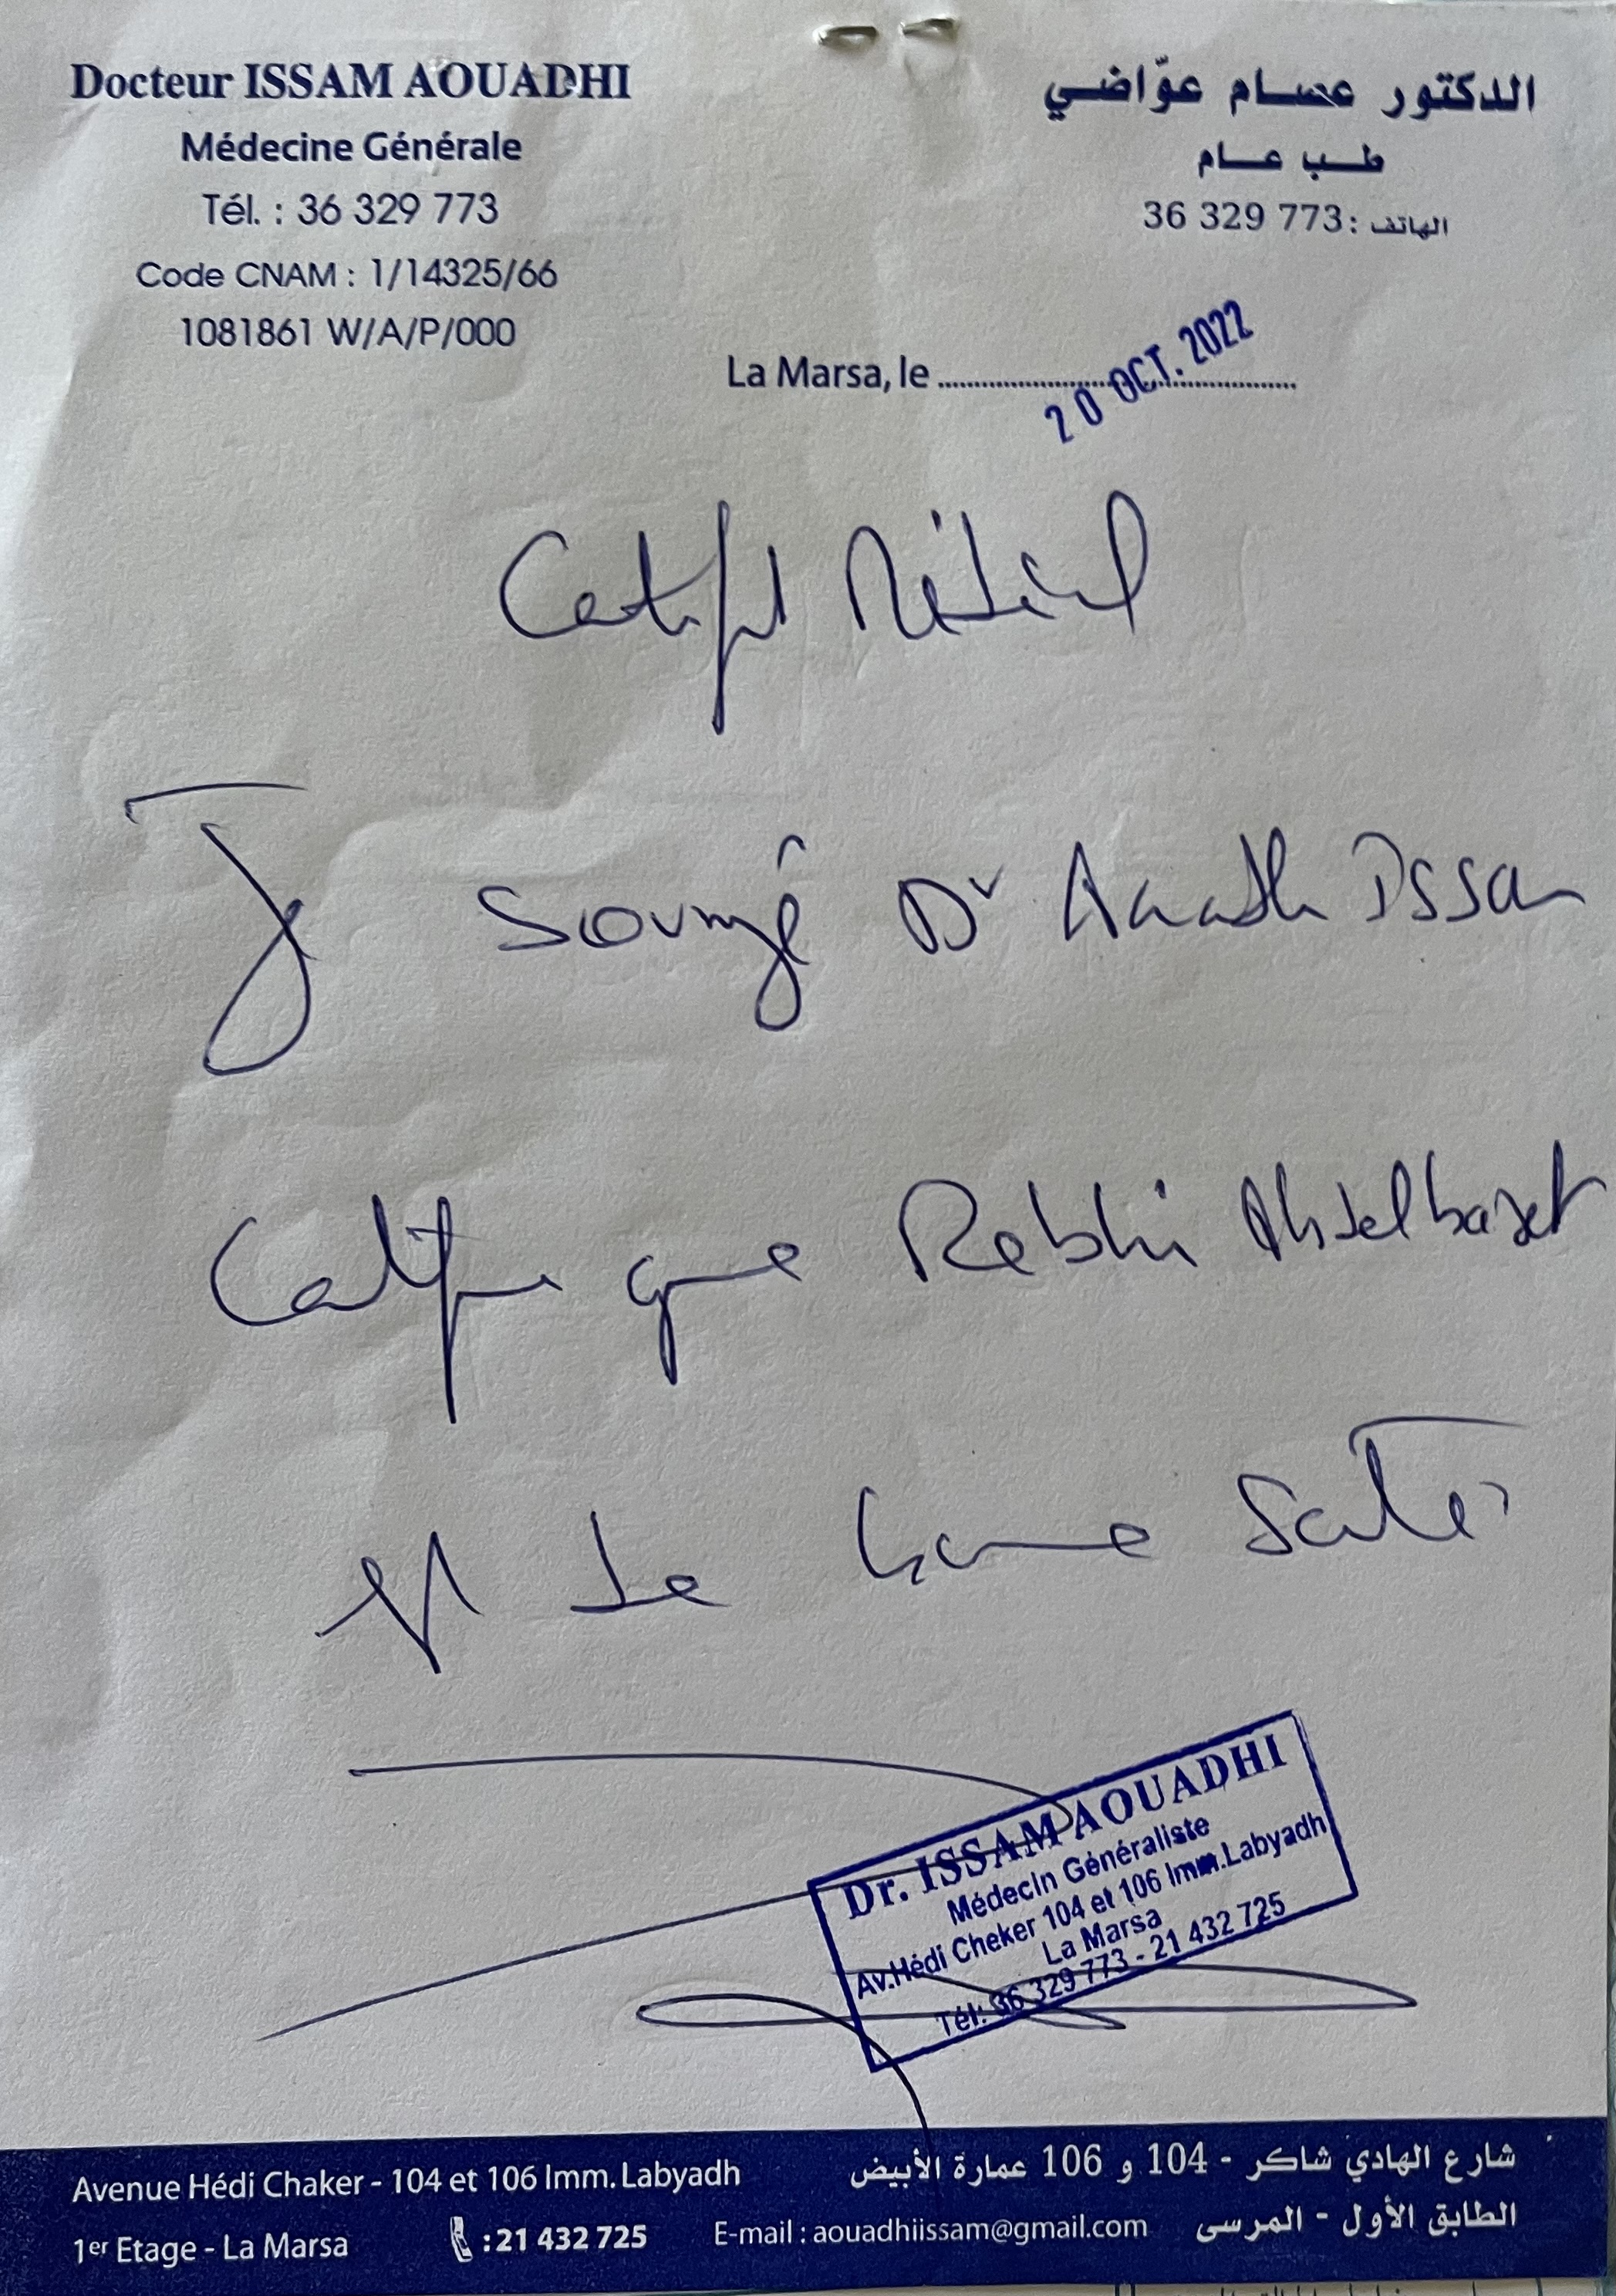 Docteur ISSAM AOUADHI
Médecine Générale
Tél. : 36 329 773
Code CNAM : 1/14325/66
1081861 W/A/P/000
الدكتور عصام عوّاضي
طب عام
الهاتف : 36 329 773
La Marsa, le 20 OCT. 2022
Certificat Médical
Je soussigné Dr Aouadhi Issam
Certifie que Rebhi Abdelbaset
est de bonne santé
Dr. ISSAM AOUADHI
Médecin Généraliste
Av.Hédi Cheker 104 et 106 Imm.Labyadh
La Marsa
Tél: 36 329 773 - 21 432 725
Avenue Hédi Chaker - 104 et 106 Imm. Labyadh
شارع الهادي شاكر - 104 و 106 عمارة الأبيض
1er Etage - La Marsa : 21 432 725 E-mail : aouadhiissam@gmail.com
الطابق الأول - المرسى